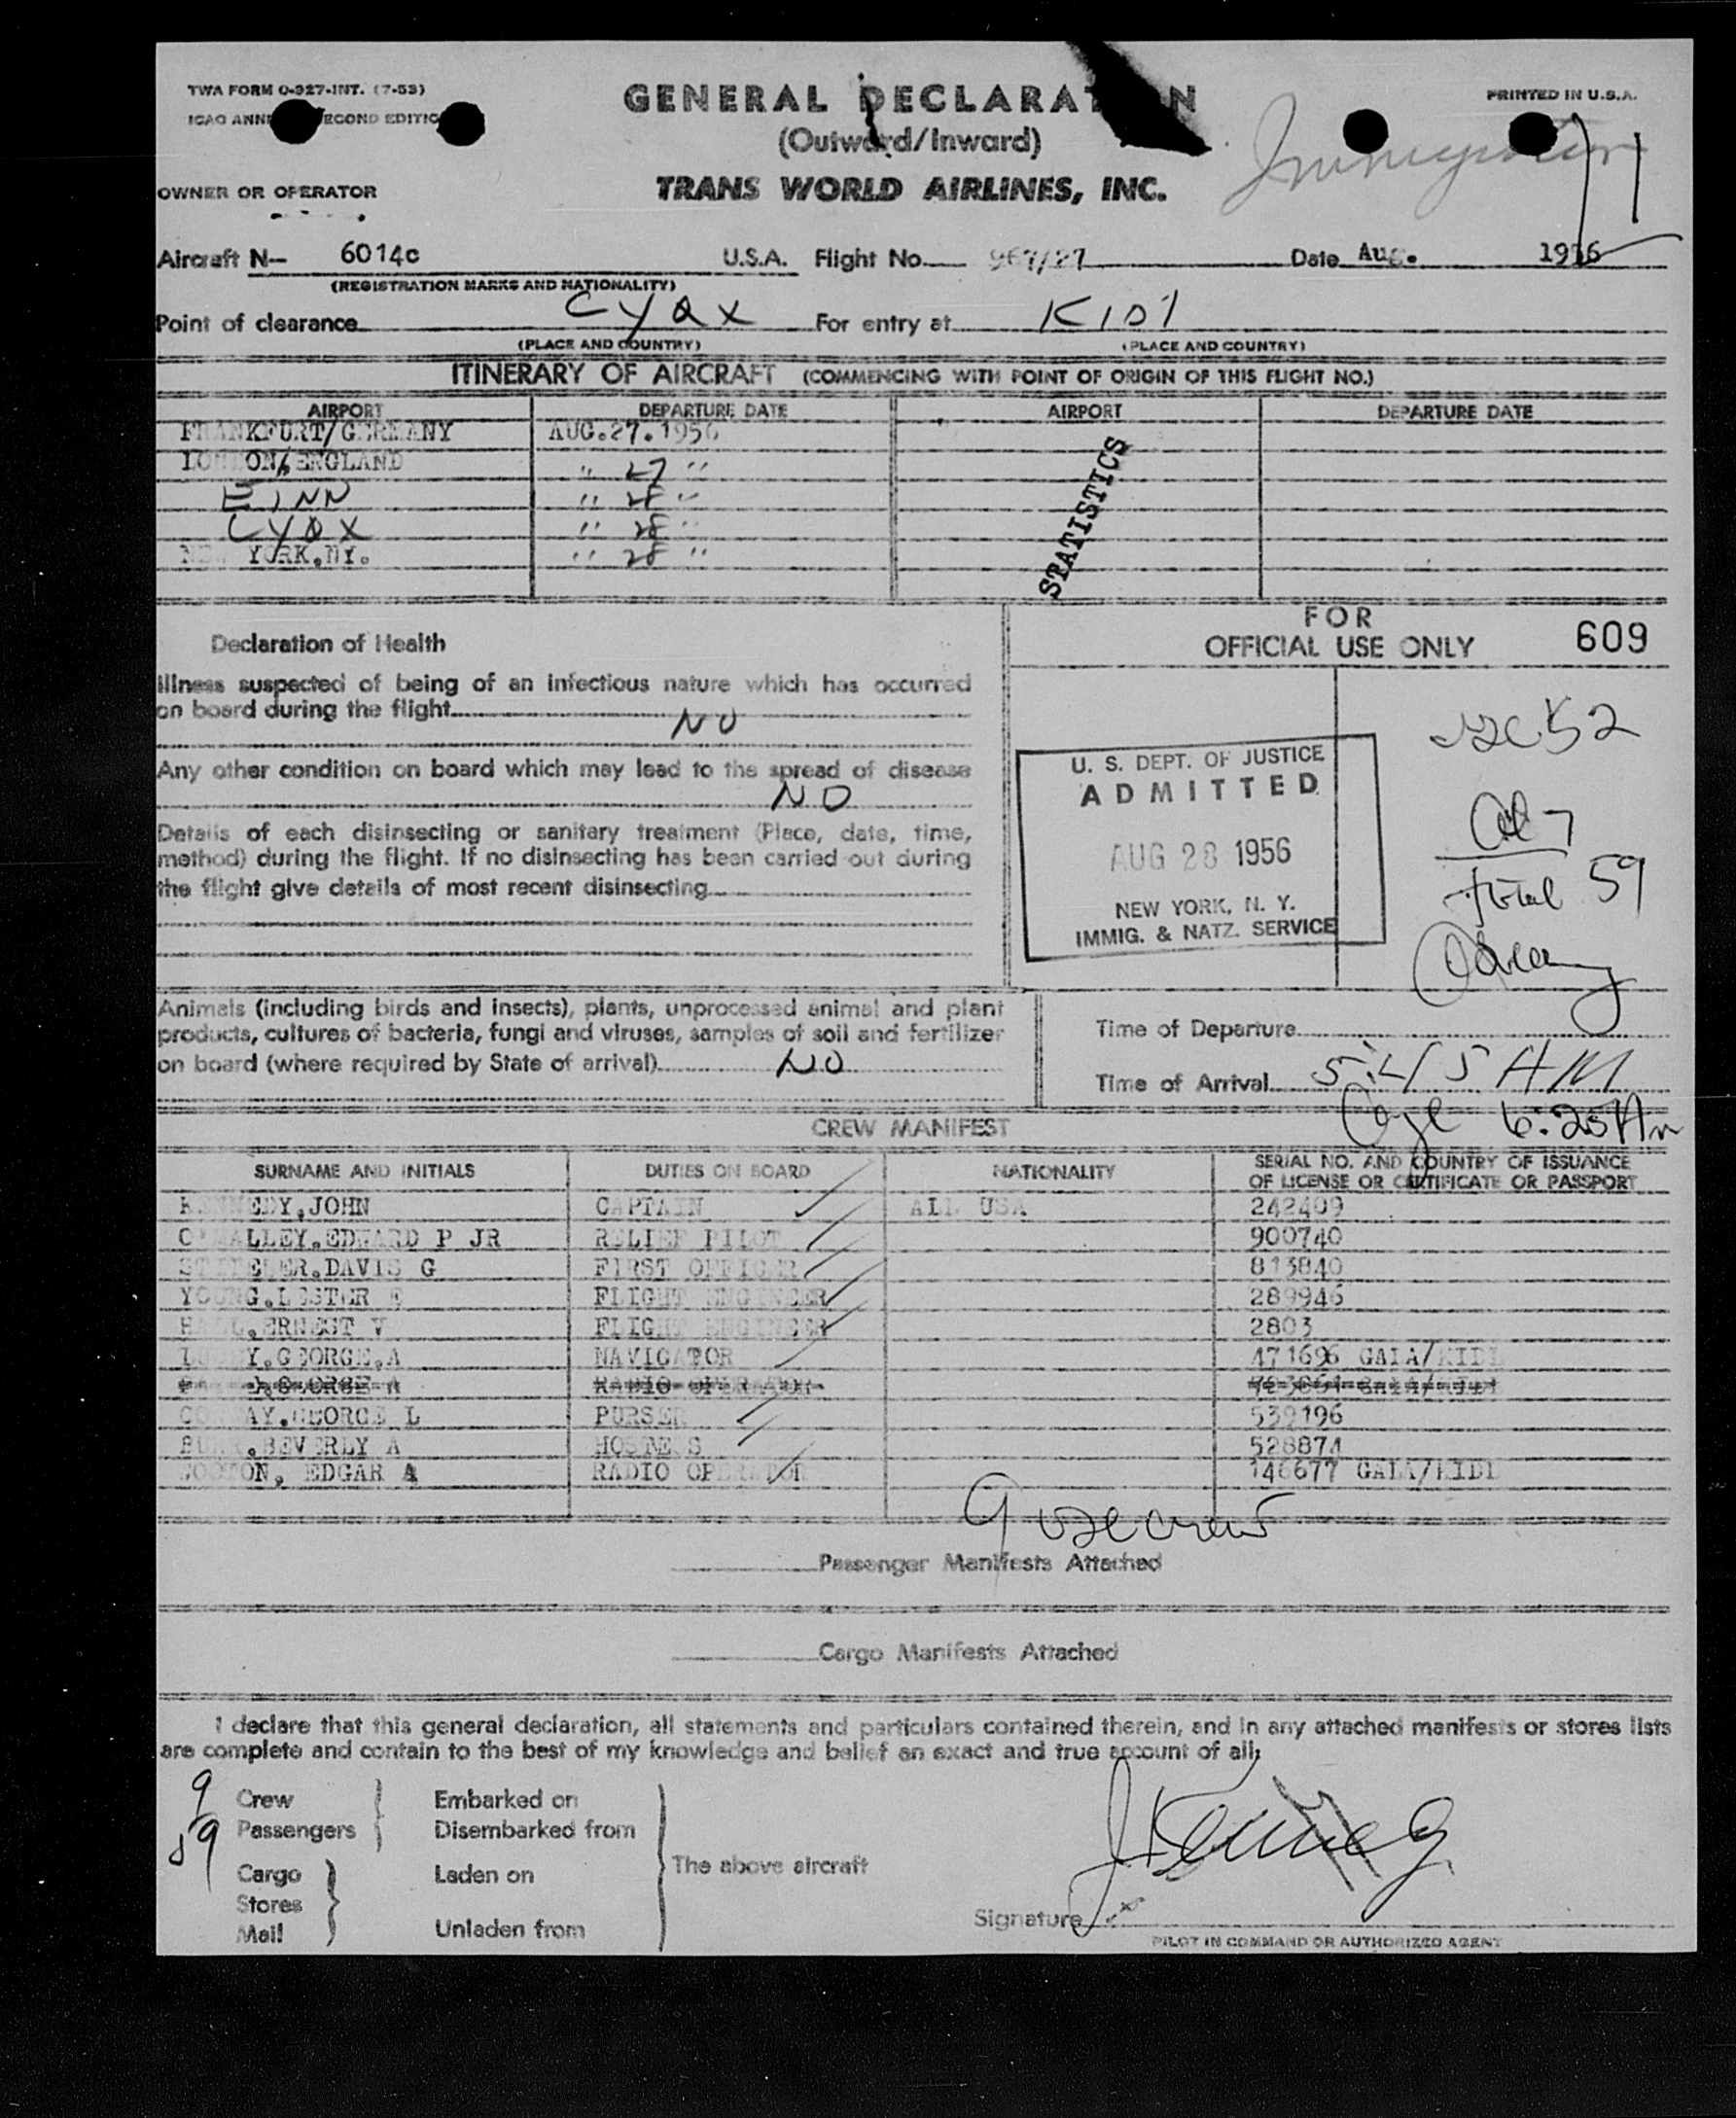 TWA FORM O-927-INT. (7-53)
PRINTED IN U.S.A.
GENERAL DECLARA N
ICAO ANN ECOND EDITIO
(Outward/Inward)
Immigration
OWNER OR OPERATOR
TRANS WORLD AIRLINES, INC.
Aircraft N— 6014c U.S.A. Flight No. 967/27 Date Aug. 1956
(REGISTRATION MARKS AND NATIONALITY)
Point of clearance CYQX For entry at KIDL
(PLACE AND COUNTRY) (PLACE AND COUNTRY)
ITINERARY OF AIRCRAFT (COMMENCING WITH POINT OF ORIGIN OF THIS FLIGHT NO.)
AIRPORT DEPARTURE DATE AIRPORT DEPARTURE DATE
FRANKFURT/GERMANY AUG.27.1956
LONDON,ENGLAND " 27 "
EINN " 28 "
CYQX " 28 "
NEW YORK,NY. " 28 "
STATISTICS
FOR
OFFICIAL USE ONLY 609
Declaration of Health
Illness suspected of being of an infectious nature which has occurred
on board during the flight NO
Any other condition on board which may lead to the spread of disease
NO
Details of each disinsecting or sanitary treatment (Place, date, time,
method) during the flight. If no disinsecting has been carried out during
the flight give details of most recent disinsecting
U. S. DEPT. OF JUSTICE
ADMITTED
AUG 28 1956
NEW YORK, N. Y.
IMMIG. & NATZ. SERVICE
52
7
total 59
Animals (including birds and insects), plants, unprocessed animal and plant
products, cultures of bacteria, fungi and viruses, samples of soil and fertilizer
on board (where required by State of arrival) NO
Time of Departure
Time of Arrival 5:45 AM
6:25 AM
CREW MANIFEST
SURNAME AND INITIALS DUTIES ON BOARD NATIONALITY SERIAL NO. AND COUNTRY OF ISSUANCE
OF LICENSE OR CERTIFICATE OR PASSPORT
KENNEDY,JOHN CAPTAIN ALL USA 242409
O'MALLEY.EDWARD P JR RELIEF PILOT 900740
DAVIS G FIRST OFFICER 813840
YOUNG.LESTER E FLIGHT ENGINEER 289946
ERNEST V FLIGHT ENGINEER 2803
GEORGE,A NAVIGATOR 471696 GALA/KIDL
RADIO OPERATOR
CONWAY.GEORGE L PURSER 539196
BEVERLY A HOSTESS 528874
EDGAR A RADIO OPERATOR 146677 GALA/KIDL
9 USC crew
Passenger Manifests Attached
Cargo Manifests Attached
I declare that this general declaration, all statements and particulars contained therein, and in any attached manifests or stores lists
are complete and contain to the best of my knowledge and belief an exact and true account of all;
9 Crew Embarked on
59 Passengers Disembarked from
The above aircraft
Cargo Laden on
Stores
Mail Unladen from
J Kennedy
Signature
PILOT IN COMMAND OR AUTHORIZED AGENT